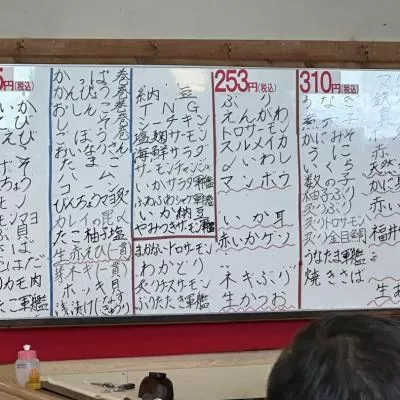 5円(税込)
いか
えび
げそ
びんちょう
モンマヨ
貝
さば
こはだ
カモ肉
たたき軍艦
かっぱ巻
かんぴょう巻
おしんこ巻
しそ巻
ごぼう巻
おいなりさん
たまご
コーン
びんちょうマヨネ
カレイの昆〆
たこ柚子塩
生赤えび(一貫)
芽ネギ(一貫)
ホッキ貝
浅漬け(なす
納豆
TNG
シーチキン
塩麹サーモン
海鮮サラダ
サーモンチャンジャ
いかサラダ軍艦
ふわふわシャケ軍艦
いか納豆
やみつきサーモン軍艦
まかないトロサーモン
わかどり
炙りチーズサーモン
ぶりたたき軍艦
253円(税込)
ぶり
えんがわ
トロサーモン
スルメイカ
〆いわし
マンボウ
いか耳
赤いかゲソ
ネギぶり
生かつお
310円(税込)
うなぎ
煮穴子
かにみそ
うに
いくら
数の子
柚子ぶり
炙りぶり
炙りトロサーモン
炙り金目鯛
うなたま軍艦
焼きさば
マ
鉄
真
ホ
赤
天然
かに
赤い
福井
生あ